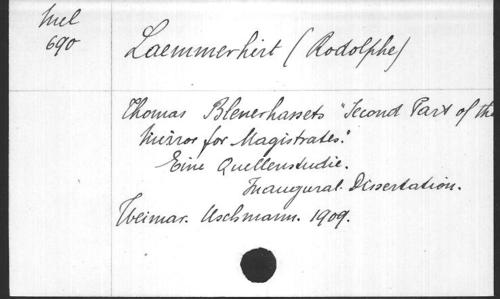 Mel
690
Laemmerhirt (Rodolphe)
Thomas Blenerhassets "Second Part of the
Mirror for Magistrates."
Eine Quellenstudie.
Inaugural. Dissertation.
Weimar. Uschmann. 1909.